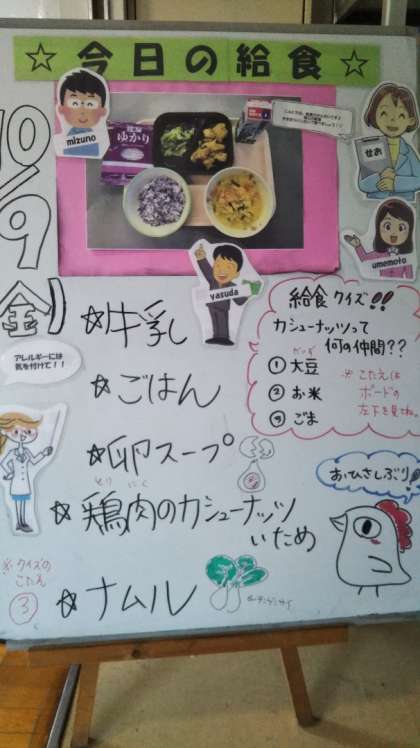 ☆今日の給食☆
10/9
(金)
mizuno
ゆかり
せお
umemoto
yasuda
アレルギーには
気を付けて!!
☆牛乳
☆ごはん
☆卵スープ
とり にく
☆鶏肉のカシューナッツ
いため
☆ナムル
給食クイズ!!
カシューナッツって
何の仲間??
だいず
①大豆
②お米
③ごま
※こたえは
ボードの
左下を見てね。
おひさしぶり
※クイズの
こたえ
③